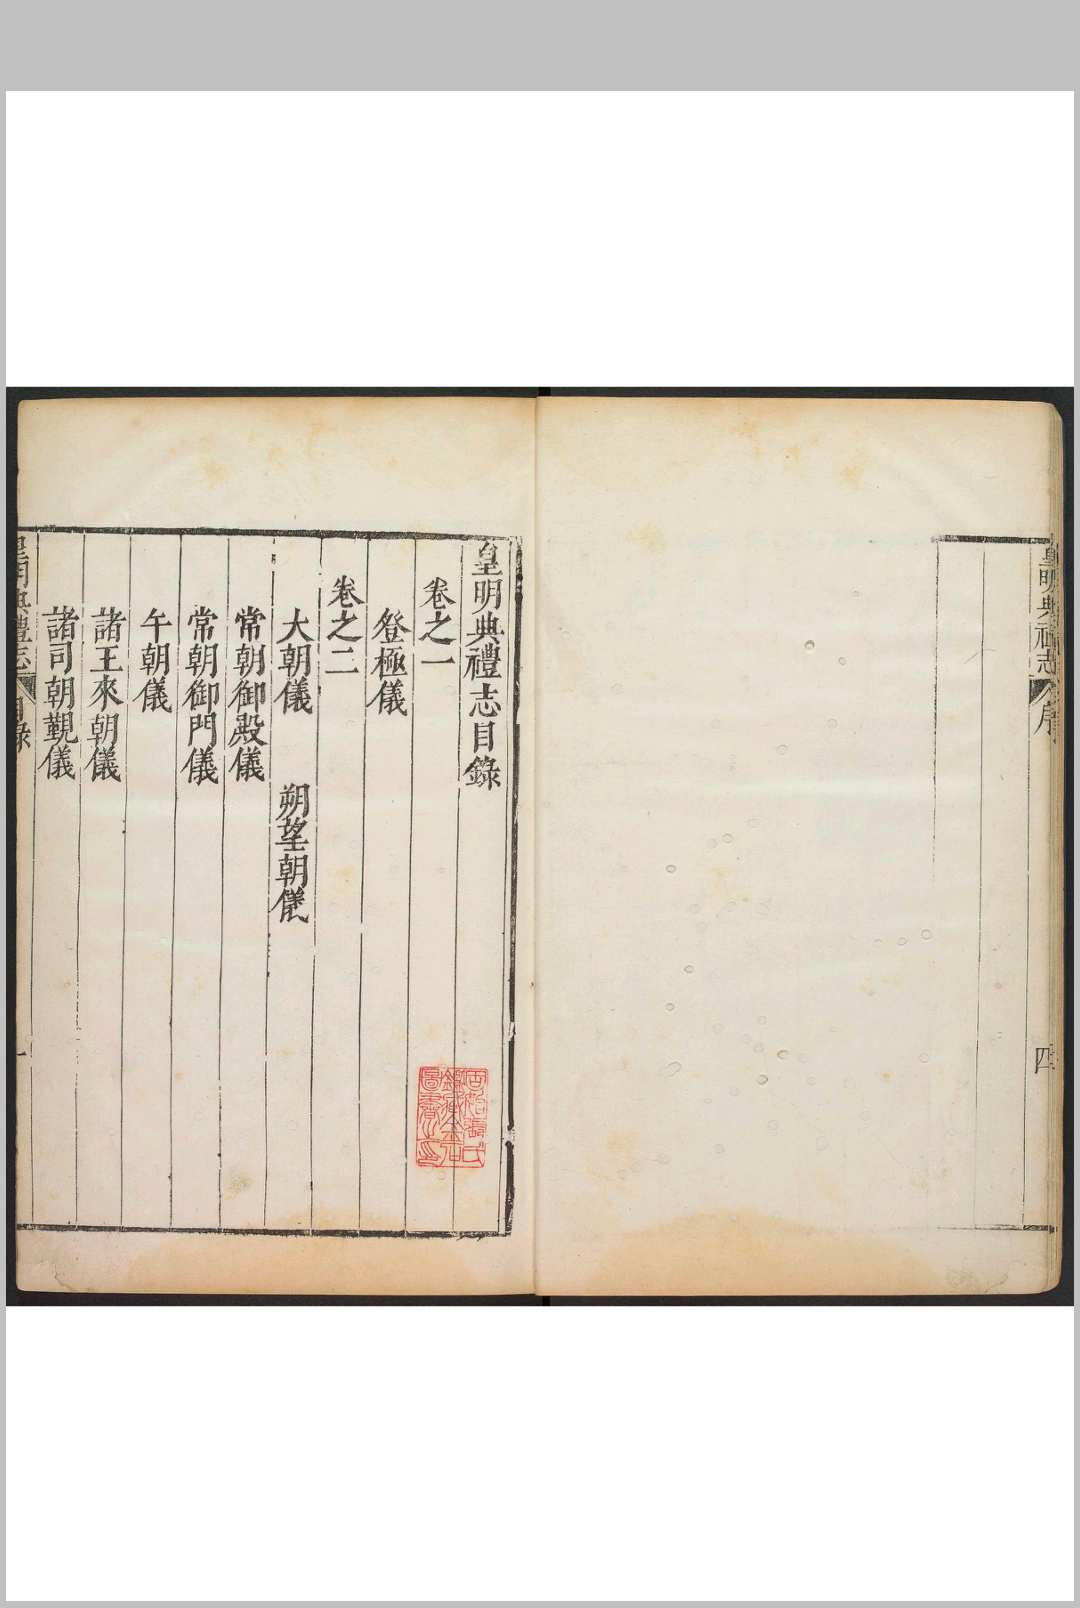 皇明典禮志
序
四
皇明典禮志目錄
卷之一
登極儀
卷之二
大朝儀 朔望朝儀
常朝御殿儀
常朝御門儀
午朝儀
諸王來朝儀
諸司朝覲儀
皇明典禮志
目錄
一